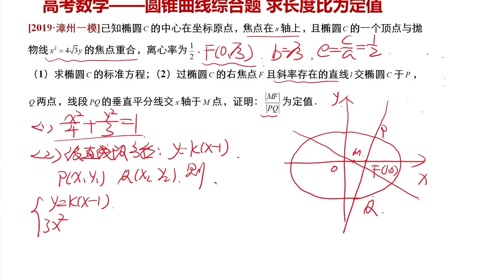 高考数学——圆锥曲线综合题 求长度比为定值
[2019·漳州一模]已知椭圆C的中心在坐标原点,焦点在x轴上,且椭圆C的一个顶点与抛
物线x²=4√3y的焦点重合,离心率为1/2. F(0,√3) b=√3. e=c/a=1/2
(1)求椭圆C的标准方程;(2)过椭圆C的右焦点F且斜率存在的直线l交椭圆C于P,
Q两点,线段PQ的垂直平分线交x轴于M点,证明:|MF|/|PQ|为定值.
(1) x²/4+y²/3=1
(2) 设直线 y=k(x-1).
P(x₁ y₁) Q(x₂ y₂).
{ y=k(x-1)
3x²
y
P
M
O
F(1,0)
x
Q